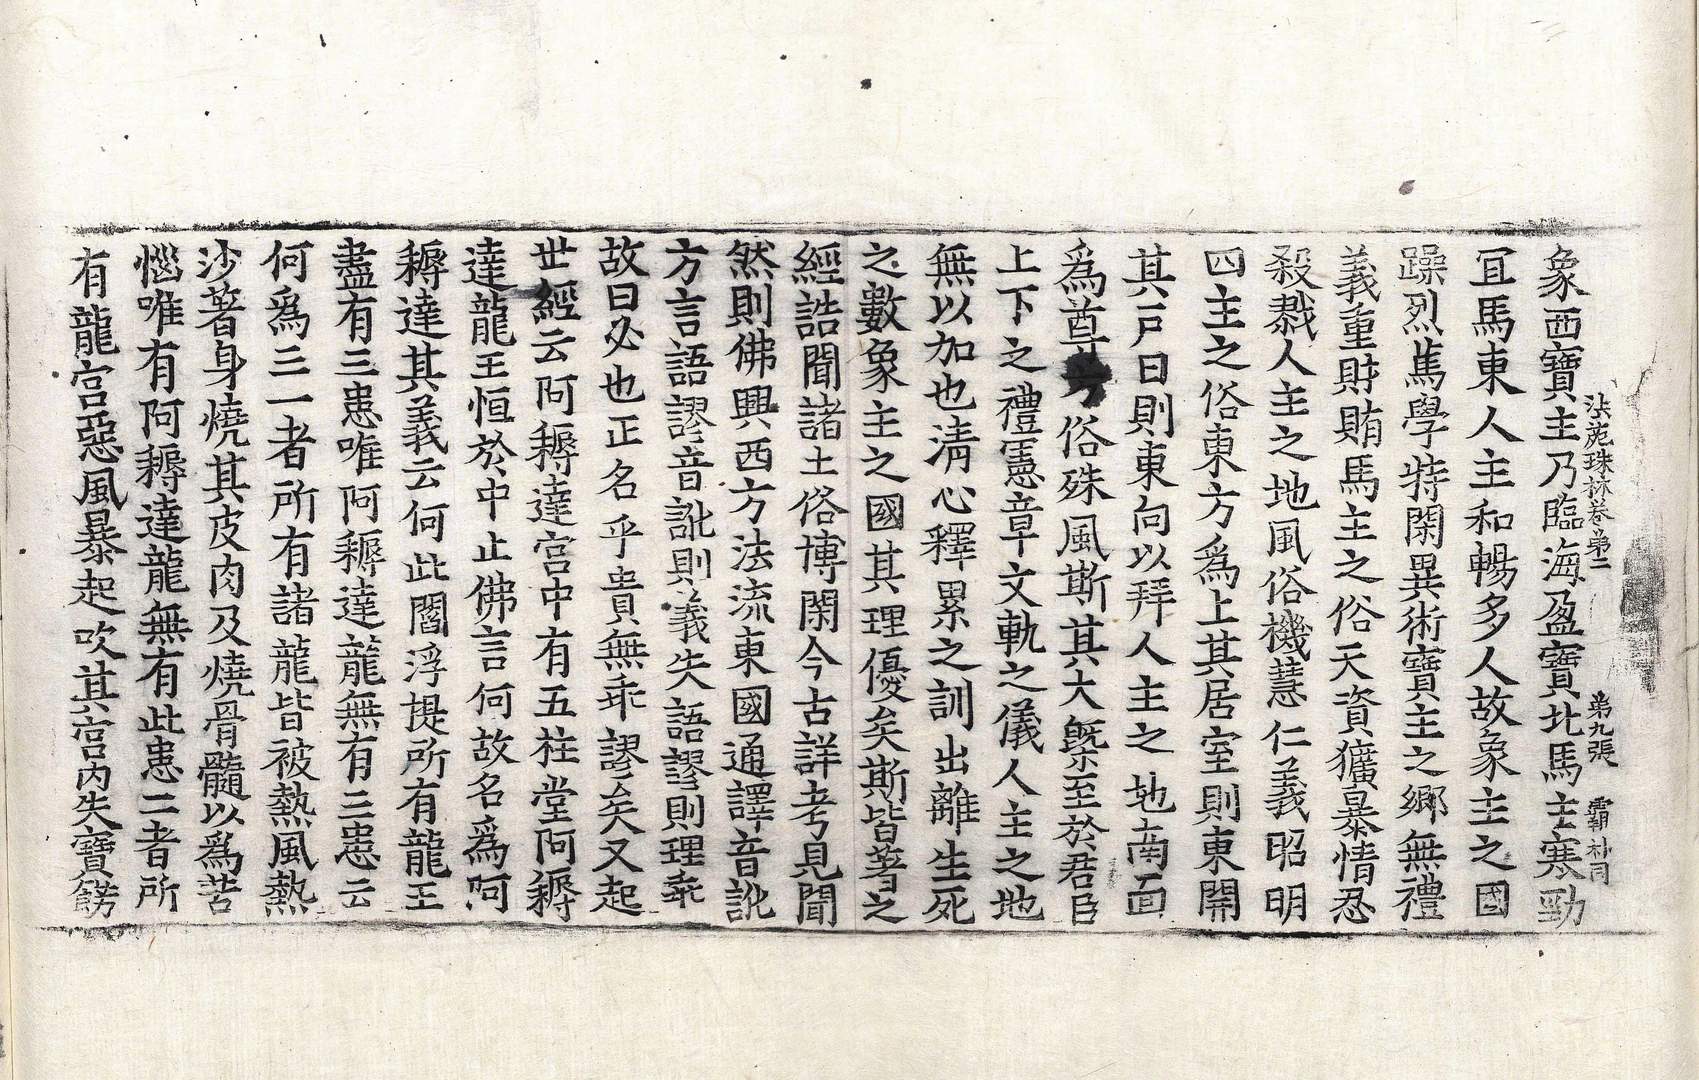 法苑珠林卷第二 第九張 覇 朴同
象西寶主乃臨海盈寶北馬主寒勁
冝馬東人主和暢多人故象主之國
躁烈篤學特閑異術寶主之鄉無禮
義重財賄馬主之俗天資獷暴情忍
殺戮人主之地風俗機慧仁義昭明
四主之俗東方爲上其居室則東開
其戸日則東向以拜人主之地南面
爲尊方俗殊風斯其大槩至於君臣
上下之禮憲章文軌之儀人主之地
無以加也清心釋累之訓出離生死
之數象主之國其理優矣斯皆著之
經誥聞諸土俗博閑今古詳考見聞
然則佛興西方法流東國通譯音訛
方言語謬音訛則義失語謬則理乖
故曰必也正名乎貴無乖謬矣又起
世經云阿耨達宫中有五柱堂阿耨
達龍王恒於中止佛言何故名爲阿
耨達其義云何此閻浮提所有龍王
盡有三患唯阿耨達龍無有三患云
何爲三一者所有諸龍皆被熱風熱
沙著身燒其皮肉及燒骨髓以爲苦
惱唯有阿耨達龍無有此患二者所
有龍宫惡風暴起吹其宫内失寶餝